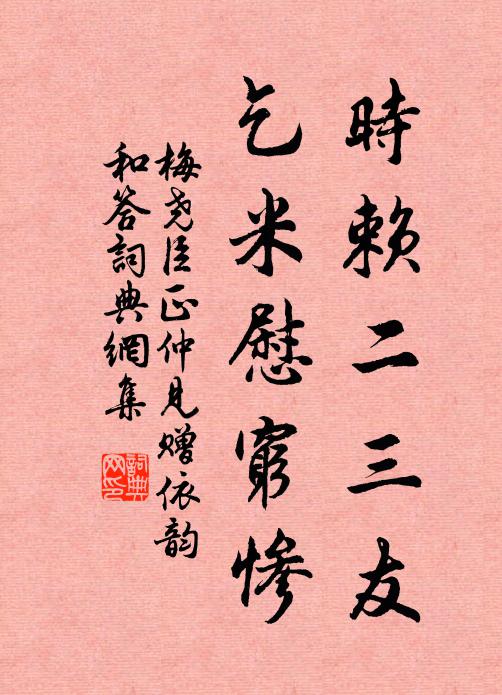 時賴二三友
乞米慰窮慘
梅堯臣正仲見贈依韵
和答詞典網集
詞典
网印